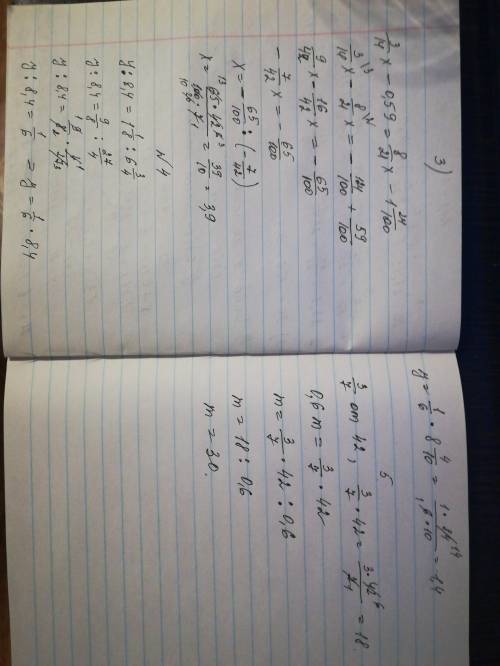 3)
3/14 x − 0,59 = 8/21 x − 1 24/100
3\3/14 x − 8\2/21 x = − 124/100 + 59/100
9/42 x − 16/42 x = − 65/100
− 7/42 x = − 65/100
x = − 65/100 : (− 7/42)
x = = 39/10 = 3,9
№4
y : 8,4 = 1 1/8 : 6 3/4
y : 8,4 = 9/8 : 27/4
y : 8,4 = 9/8 · 4/27
y : 8,4 = 1/6 = y = 1/6 · 8,4
y = 1/6 · 8 4/10 = 1·84/6·10 = 1,4
5
3/7 от 42, 3/7 · 42 = 3·42/7 = 18.
0,6 m = 3/7 · 42
m = 3/7 · 42 : 0,6
m = 18 : 0,6
m = 30.